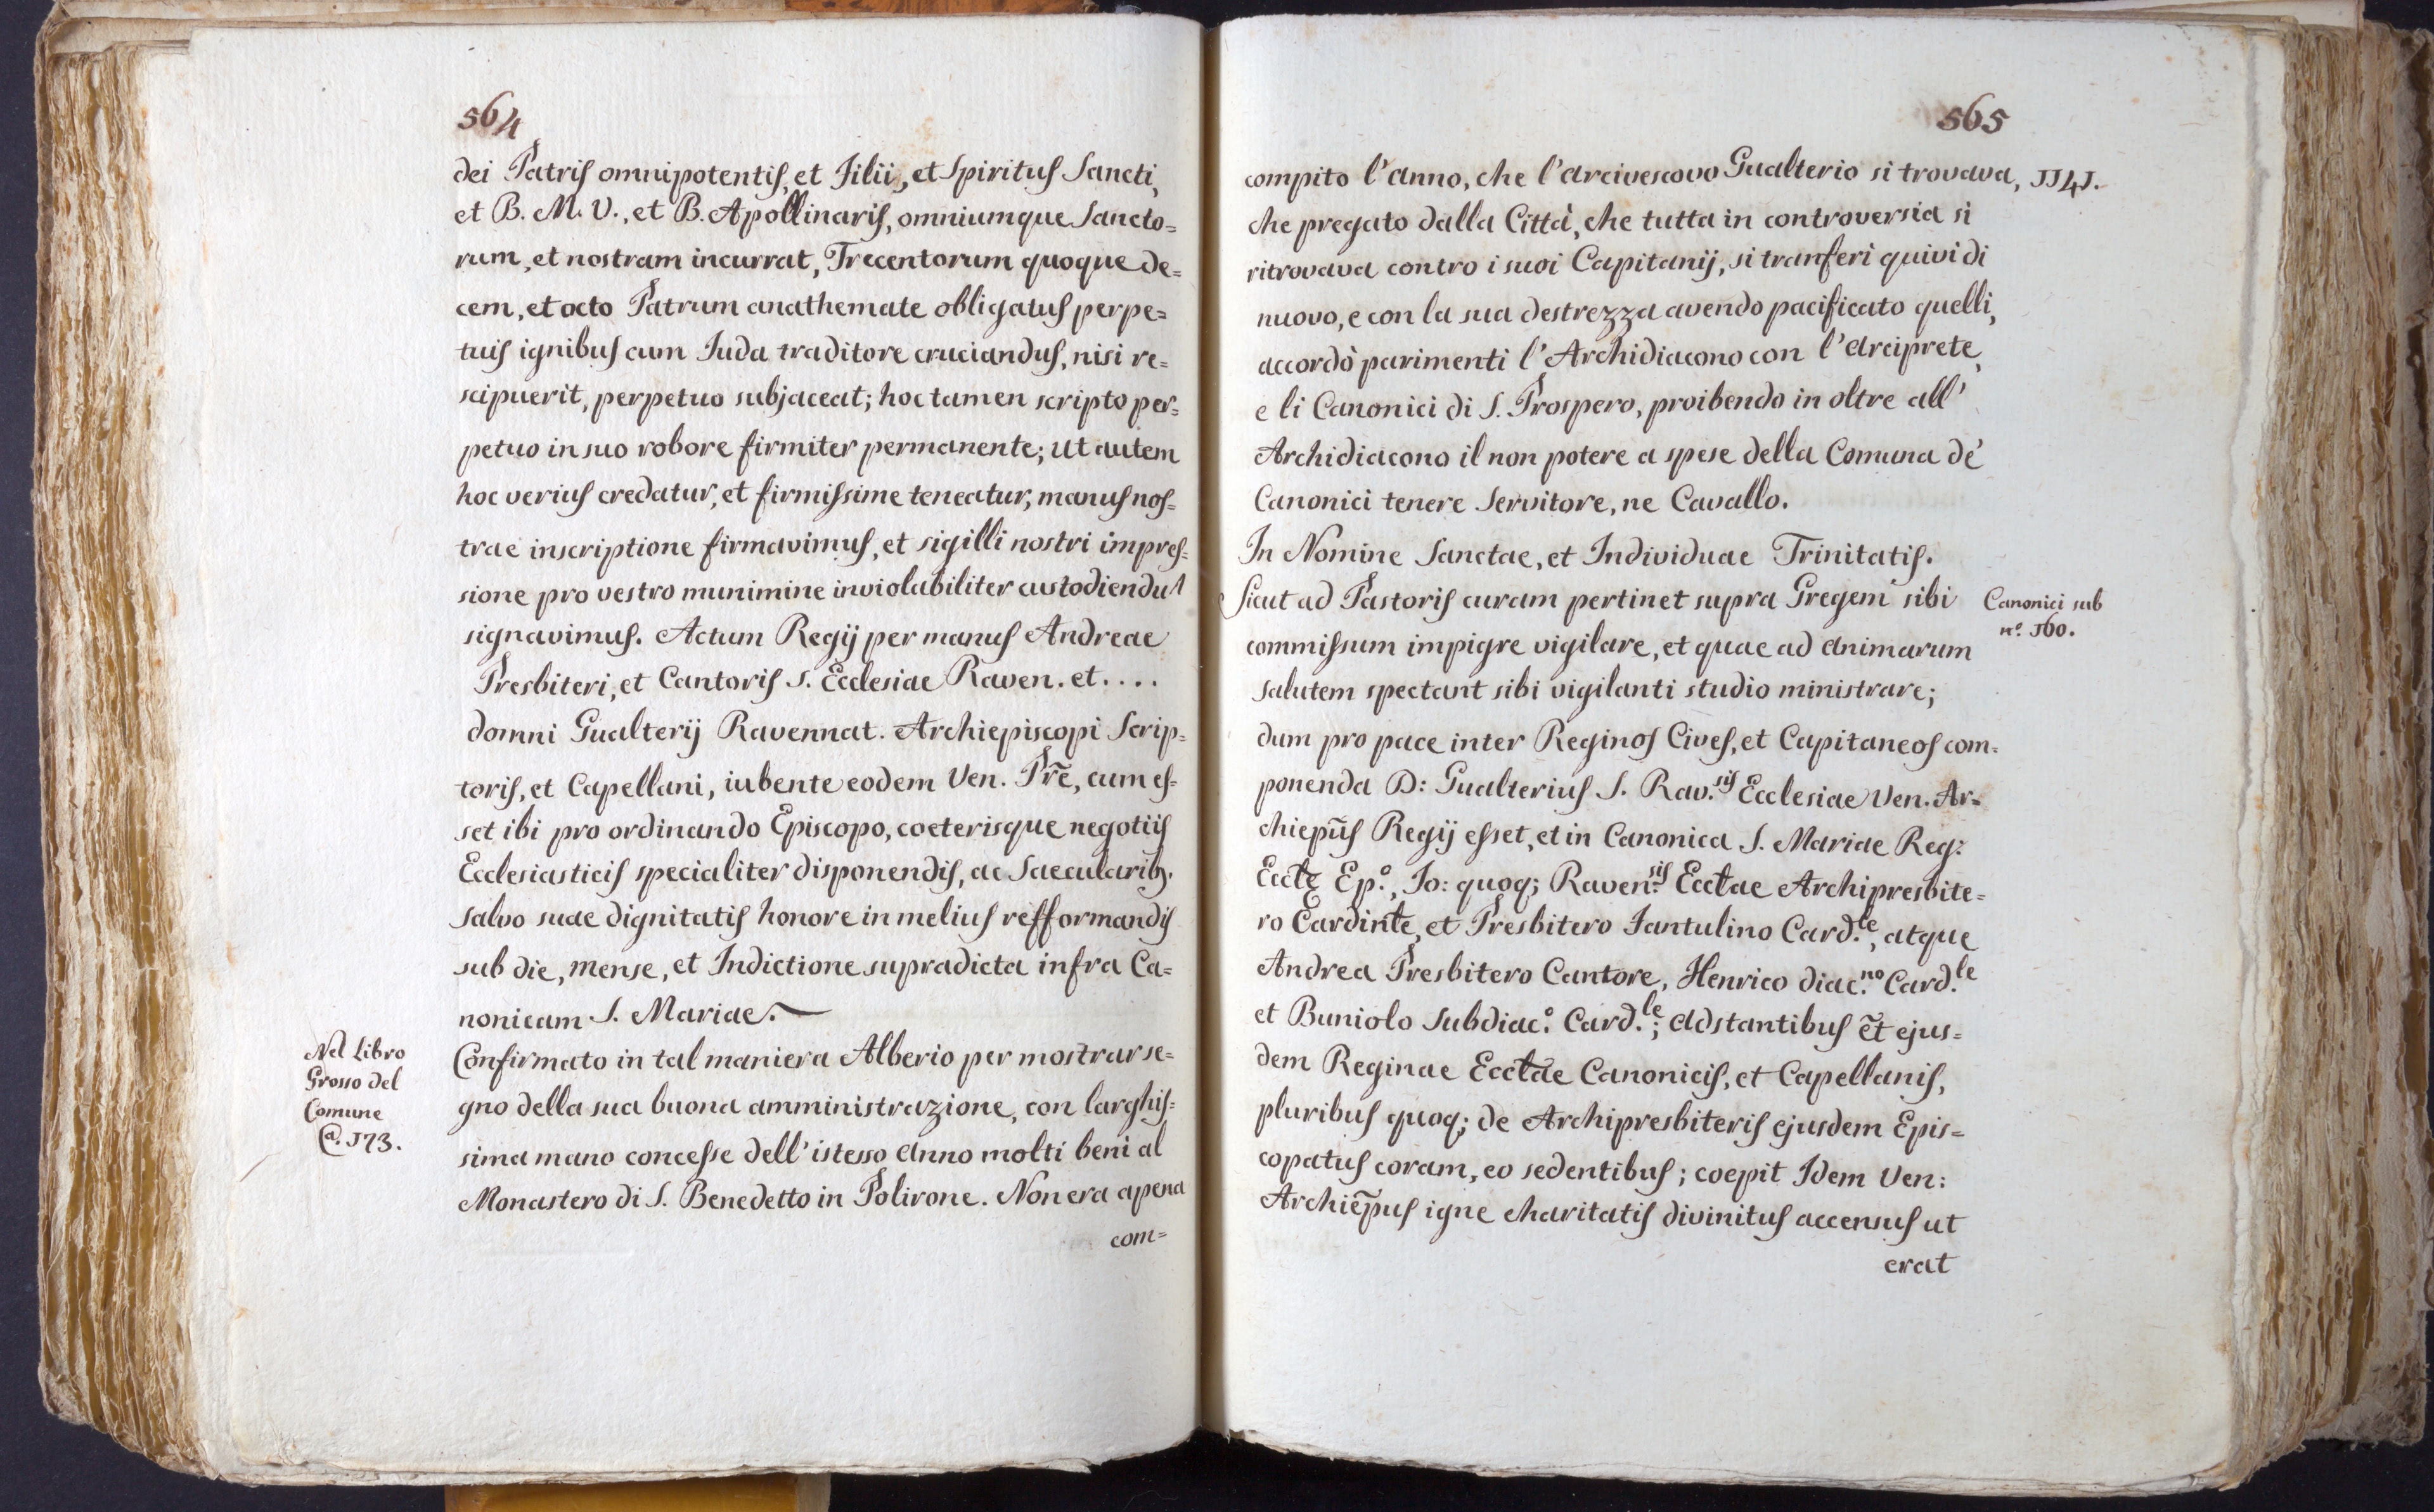 564
dei Patris omnipotentis, et Filii, et Spiritus Sancti,
et B. M. V., et B. Apollinaris, omniumque Sancto=
rum, et nostram incurrat, Trecentorum quoque de=
cem, et octo Patrum anathemate obligatus perpe=
tuis ignibus cum Iuda traditore cruciandus, nisi re=
scipuerit, perpetuo subjaceat; hoc tamen scripto per=
petuo in suo robore firmiter permanente; Ut autem
hoc verius credatur, et firmissime teneatur, manus nos=
trae inscriptione firmavimus, et sigilli nostri impres=
sione pro vestro munimine inviolabiliter custodiendus
signavimus. Actum Regij per manus Andreae
Presbiteri, et Cantoris S. Ecclesiae Raven. et....
domni Gualterij Ravennat. Archiepiscopi Scrip=
toris, et Capellani, iubente eodem Ven. Pr̃e, cum es=
set ibi pro ordinando Episcopo, coeterisque negotiis
Ecclesiasticis specialiter disponendis, ac Saecularib.
salvo suae dignitatis honore in melius refformandis
sub die, mense, et Indictione supradicta infra Ca=
nonicam S. Mariae.
Nel Libro
Grosso del
Comune
@. 173.
Confirmato in tal maniera Alberio per mostrar se=
gno della sua buona amministrazione, con larghis=
sima mano concesse dell' istesso anno molti beni al
Monastero di S. Benedetto in Polirone. Non era apena
com=
565
compito l'anno, che l'arcivescovo Gualterio si trovava, 1141.
che pregato dalla Città, che tutta in controversia si
ritrovava contro i suoi Capitanij, si tranferi quivi di
nuovo, e con la sua destrezza avendo pacificato quelli,
accordò parimenti l'Archidiacono con l'arciprete,
e li Canonici di S. Prospero, proibendo in oltre all'
Archidiacono il non potere a spese della Comuna de'
Canonici tenere Servitore, ne Cavallo.
In Nomine Sanctae, et Individuae Trinitatis.
Sicut ad Pastoris curam pertinet supra Gregem sibi
Canonici sub
n.º 160.
commissum impigre vigilare, et quae ad animarum
salutem spectant sibi vigilanti studio ministrare;
dum pro pace inter Reginos Cives, et Capitaneos com=
ponenda D: Gualterius S. Rav.sis Ecclesiae Ven. Ar=
chiep̃us Regij esset, et in Canonica S. Mariae Reg:
Eccłę Ep.º, Io: quoq; Raven.sis Eccłae Archipresbite=
ro Cardinłe, et Presbitero Fantulino Card.le, atque
Andrea Presbitero Cantore, Henrico diac.no Card.le
et Buniolo Subdiac.º Card.le; adstantibus et̃ ejus=
dem Reginae Eccłae Canonicis, et Capellanis,
pluribus quoq; de Archipresbiteris ejusdem Epis=
copatus coram, eo sedentibus; coepit Idem Ven:
Archiep̃us igne charitatis divinitus accensus ut
erat